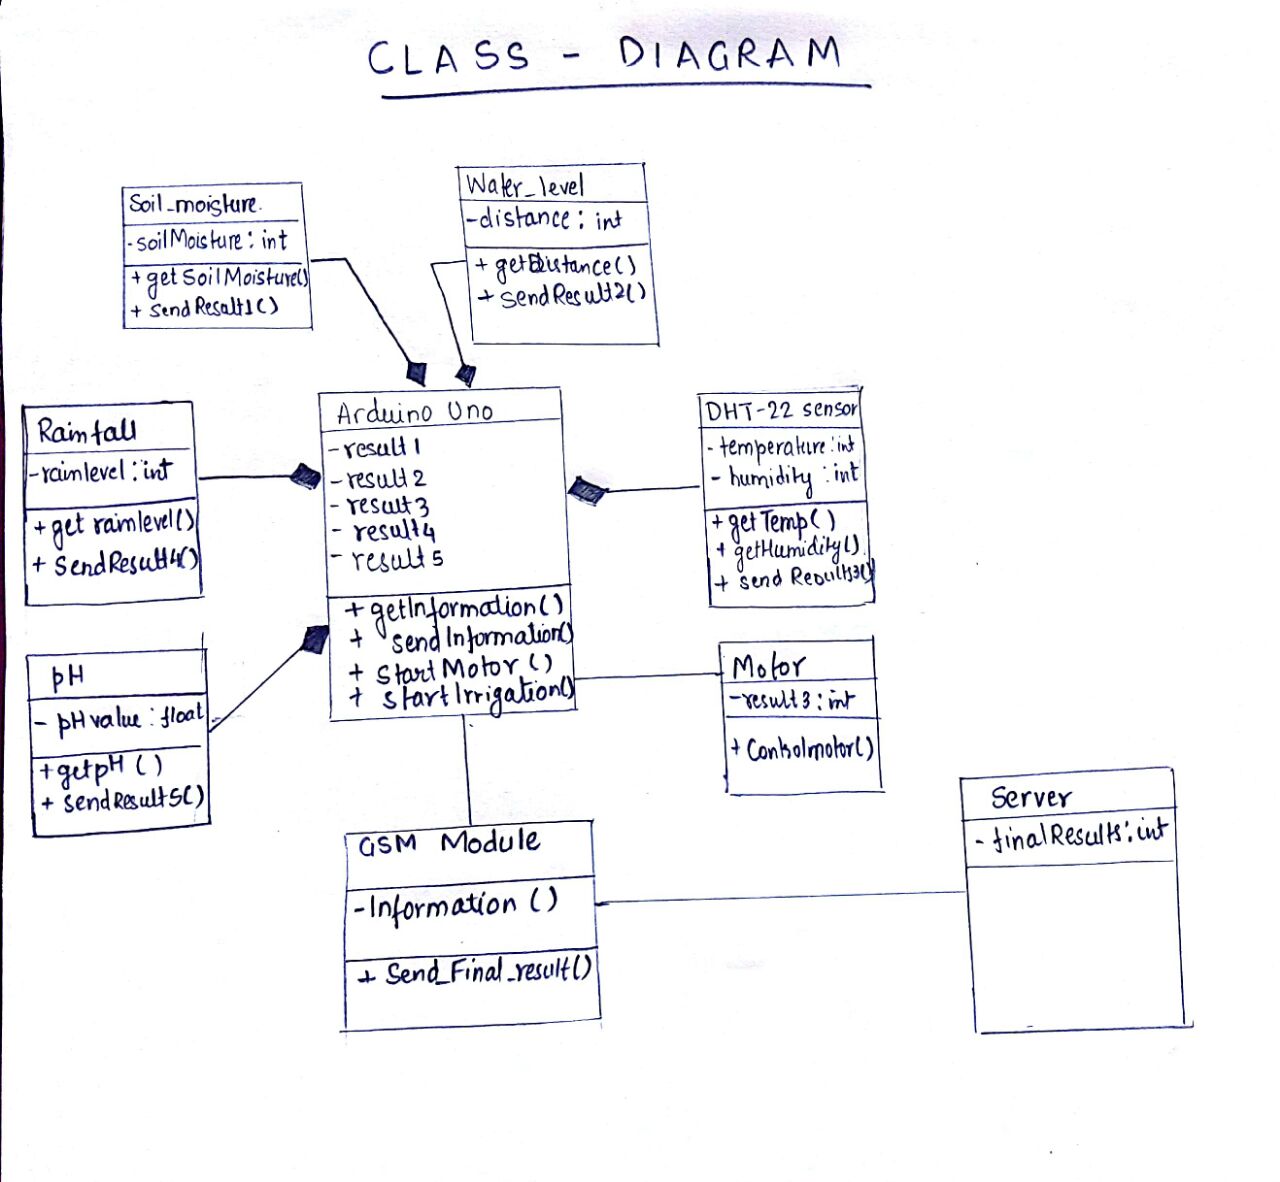 CLASS - DIAGRAM
Soil_moisture.
- soilMoisture : int
+ getSoilMoisture()
+ sendResult1()
Water_level
- distance : int
+ getDistance()
+ sendResult2()
Rainfall
- rainlevel : int
+ get rainlevel()
+ SendResult4()
Arduino Uno
- result 1
- result 2
- result 3
- result 4
- result 5
+ getInformation()
+ sendInformation()
+ startMotor ()
+ startIrrigation()
DHT-22 sensor
- temperature : int
- humidity : int
+ getTemp()
+ getHumidity().
+ send Results3()
pH
- pH value : float
+ getpH ()
+ sendResult5()
Motor
- result 3 : int
+ Controlmotor()
GSM Module
- Information ()
+ Send_Final_result()
Server
- finalResults : int